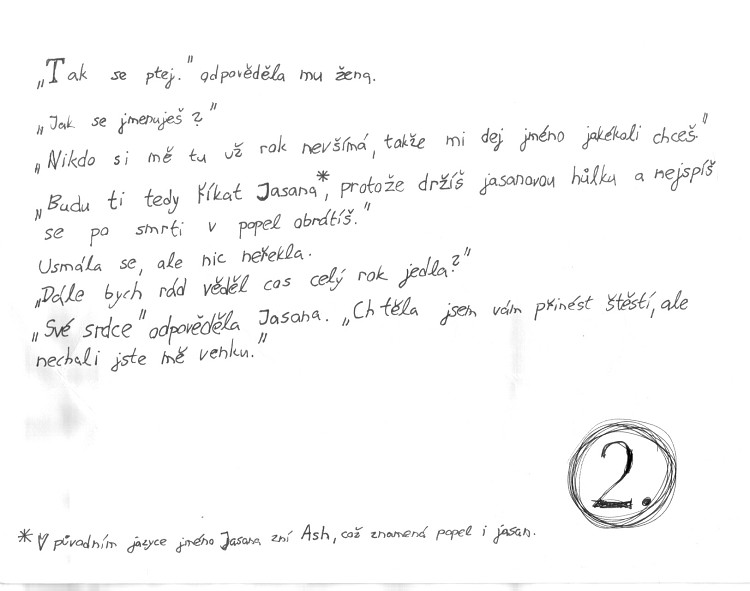 „Tak se ptej." odpověděla mu žena.
„Jak se jmenuješ?"
„Nikdo si mě tu už rok nevšímá, takže mi dej jméno jakékoli chceš."
„Budu ti tedy říkat Jasana*, protože držíš jasanovou hůlku a nejspíš
se po smrti v popel obrátíš."
Usmála se, ale nic neřekla.
„Dále bych rád věděl cos celý rok jedla?"
„Své srdce" odpověděla Jasana. „Chtěla jsem vám přinést štěstí, ale
nechali jste mě venku."
2.
* V původním jazyce jméno Jasana zní Ash, což znamená popel i jasan.